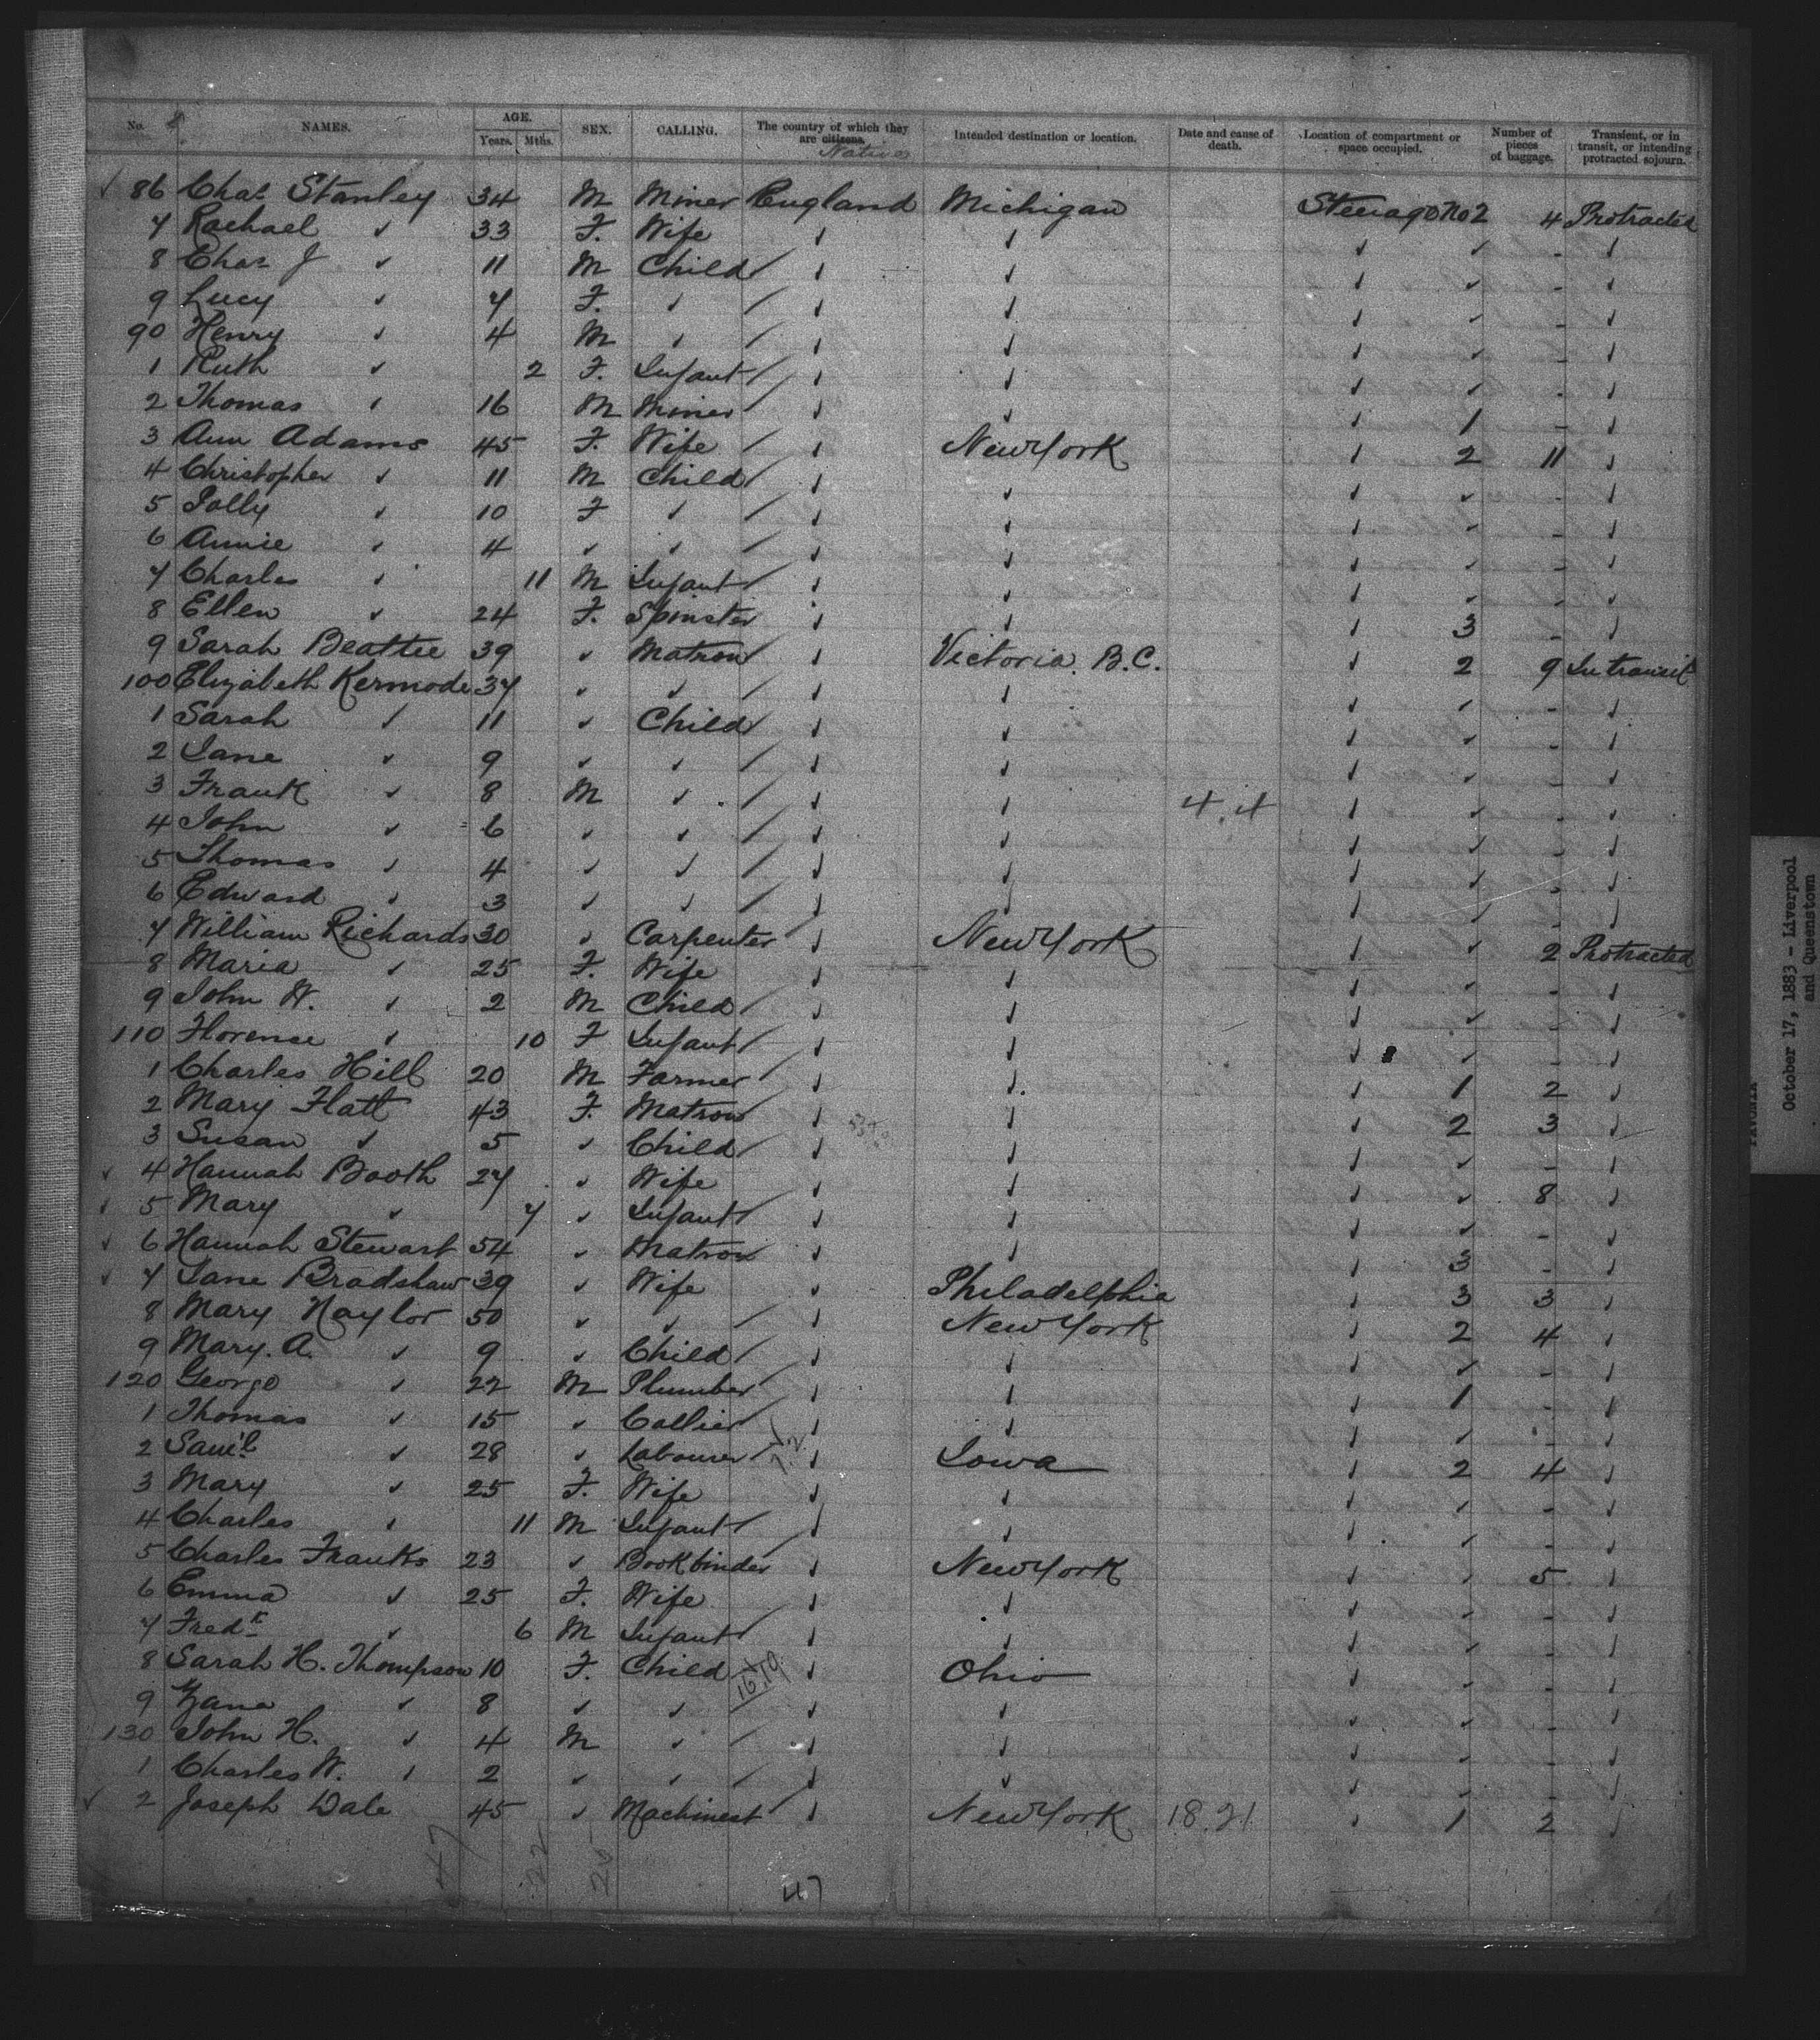 No. NAMES. AGE. Years. Mths. SEX. CALLING. The country of which they are citizens. Natives Intended destination or location. Date and cause of death. Location of compartment or space occupied. Number of pieces of baggage. Transient, or in transit, or intending protracted sojourn.
✓ 86 Chas Stanley 34 M Miner England Michigan Steerage No 2 4 Protracted
7 Rachael ✓ 33 F. Wife ✓ ✓ ✓ ✓ - ✓
8 Chas J ✓ 11 M Child ✓ ✓ ✓ ✓ - ✓
9 Lucy ✓ 7 F. ✓ ✓ ✓ ✓ ✓ - ✓
90 Henry ✓ 4 M ✓ ✓ ✓ ✓ ✓ - ✓
1 Ruth ✓ 2 F. Infant ✓ ✓ ✓ ✓ - ✓
2 Thomas ✓ 16 M Miner ✓ ✓ ✓ 1 - ✓
3 Ann Adams 45 F. Wife ✓ New York ✓ 2 11 ✓
4 Christopher ✓ 11 M Child ✓ ✓ ✓ ✓ - ✓
5 Polly ✓ 10 F ✓ ✓ ✓ ✓ ✓ - ✓
6 Annie ✓ 4 ✓ ✓ ✓ ✓ ✓ ✓ - ✓
7 Charles ✓ 11 M Infant ✓ ✓ ✓ ✓ - ✓
8 Ellen ✓ 24 F. Spinster ✓ ✓ ✓ 3 - ✓
9 Sarah Beattie 39 ✓ Matron ✓ Victoria. B.C. ✓ 2 9 In transit
100 Elizabeth Kermode 37 ✓ ✓ ✓ ✓ ✓ ✓ - ✓
1 Sarah ✓ 11 ✓ Child ✓ ✓ ✓ ✓ - ✓
2 Jane ✓ 9 ✓ ✓ ✓ ✓ ✓ ✓ - ✓
3 Frank ✓ 8 M ✓ ✓ ✓ 4.4 ✓ ✓ - ✓
4 John ✓ 6 ✓ ✓ ✓ ✓ ✓ ✓ - ✓
5 Thomas ✓ 4 ✓ ✓ ✓ ✓ ✓ ✓ - ✓
6 Edward ✓ 3 ✓ ✓ ✓ ✓ ✓ ✓ - ✓
7 William Richards 30 ✓ Carpenter ✓ New York ✓ ✓ 2 Protracted
8 Maria ✓ 25 F. Wife ✓ ✓ ✓ ✓ - ✓
9 John W. ✓ 2 M Child ✓ ✓ ✓ ✓ - ✓
110 Florence ✓ 10 F Infant ✓ ✓ ✓ ✓ - ✓
1 Charles Hill 20 M Farmer ✓ ✓ ✓ 1 2 ✓
2 Mary Flatt 43 F. Matron ✓ ✓ ✓ 2 3 ✓
3 Susan ✓ 5 ✓ Child ✓ ✓ ✓ ✓ - ✓
✓ 4 Hannah Booth 27 ✓ Wife ✓ ✓ ✓ ✓ 8 ✓
✓ 5 Mary ✓ 7 ✓ Infant ✓ ✓ ✓ ✓ - ✓
✓ 6 Hannah Stewart 54 ✓ Matron ✓ ✓ ✓ 3 - ✓
✓ 7 Jane Bradshaw 39 ✓ Wife ✓ Philadelphia ✓ 3 3 ✓
8 Mary Naylor 50 ✓ ✓ ✓ New York ✓ 2 4 ✓
9 Mary. A. ✓ 9 ✓ Child ✓ ✓ ✓ ✓ - ✓
120 George ✓ 22 M Plumber ✓ ✓ ✓ 1 - ✓
1 Thomas ✓ 15 ✓ Collier ✓ ✓ ✓ ✓ - ✓
2 Sam'l ✓ 28 ✓ Labourer ✓ Iowa ✓ 2 4 ✓
3 Mary ✓ 25 F. Wife ✓ ✓ ✓ ✓ - ✓
4 Charles ✓ 11 M Infant ✓ ✓ ✓ ✓ - ✓
5 Charles Franks 23 ✓ Bookbinder ✓ New York ✓ ✓ 5 ✓
6 Emma ✓ 25 F. Wife ✓ ✓ ✓ ✓ - ✓
7 Fredk ✓ 6 M Infant ✓ ✓ ✓ ✓ - ✓
8 Sarah H. Thompson 10 F. Child 16.19 ✓ Ohio ✓ ✓ - ✓
9 Jane ✓ 8 ✓ ✓ ✓ ✓ ✓ ✓ - ✓
130 John H. ✓ 4 M ✓ ✓ ✓ ✓ ✓ - ✓
1 Charles W. ✓ 2 ✓ ✓ ✓ ✓ ✓ ✓ - ✓
✓ 2 Joseph Dale 45 ✓ Machinest ✓ New York 18.21 ✓ 1 2 ✓
47 22 25 47
October 17, 1883 - Liverpool
and Queenstown